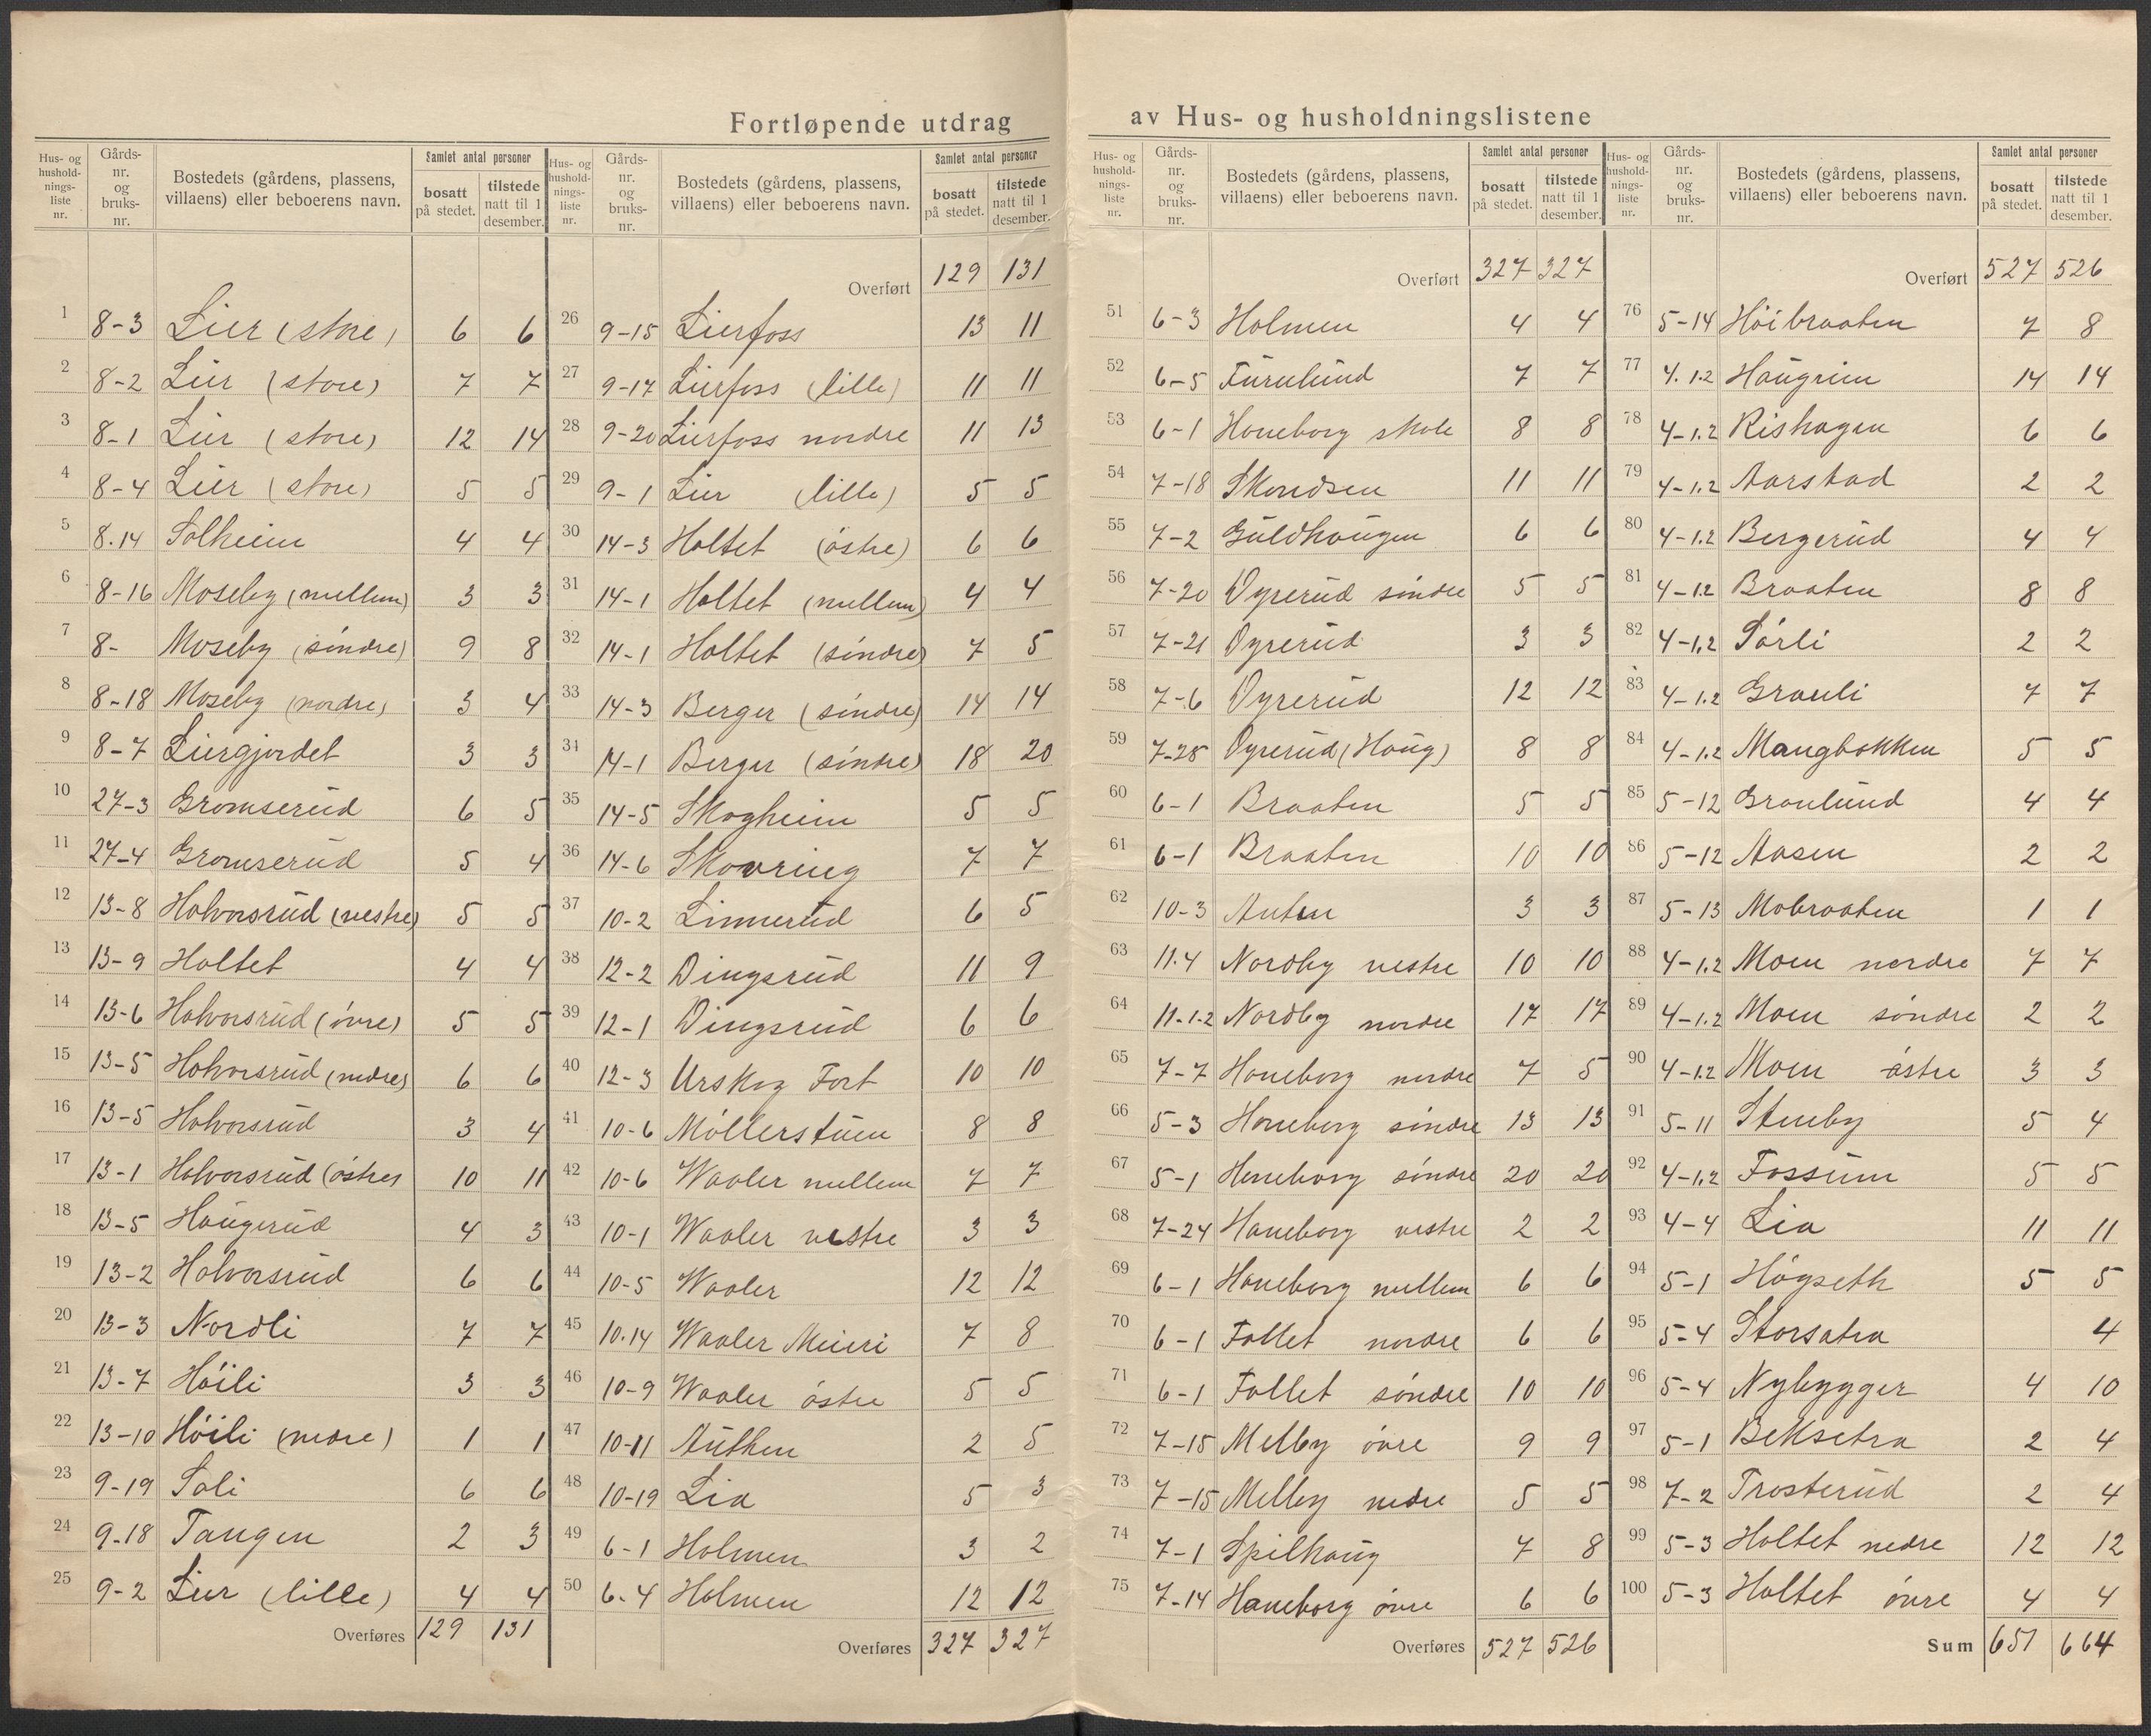 Fortløpende utdrag av Hus- og husholdningslistene
Hus- og hushold-nings-liste nr. Gårds-nr. og bruks-nr. Bostedets (gårdens, plassens, villaens) eller beboerens navn. Samlet antal personer bosatt på stedet. tilstede natt til 1 desember.
1 8-3 Lier (store) 6 6
2 8-2 Lier (store) 7 7
3 8-1 Lier (store) 12 14
4 8-4 Lier (store) 5 5
5 8.14 Solheim 4 4
6 8-16 Moseby (mellem) 3 3
7 8- Moseby (söndre) 9 8
8 8-18 Moseby (nordre) 3 4
9 8-7 Liergjordet 3 3
10 27-3 Gromserud 6 5
11 27-4 Gromserud 5 4
12 13-8 Halvorsrud (vestre) 5 5
13 13-9 Holtet 4 4
14 13-6 Halvorsrud (övre) 5 5
15 13-5 Halvorsrud (nedre) 6 6
16 13-5 Halvorsrud 3 4
17 13-1 Halvorsrud (östre) 10 11
18 13-5 Haugerud 4 3
19 13-2 Halvorsrud 6 6
20 13-3 Nordli 7 7
21 13-7 Höili 3 3
22 13-10 Höili (nedre) 1 1
23 9-19 Soli 6 6
24 9-18 Tangen 2 3
25 9-2 Lier (lille) 4 4
Overføres 129 131
Hus- og hushold-nings-liste nr. Gårds-nr. og bruks-nr. Bostedets (gårdens, plassens, villaens) eller beboerens navn. Samlet antal personer bosatt på stedet. tilstede natt til 1 desember.
Overført 129 131
26 9-15 Lierfoss 13 11
27 9-17 Lierfoss (lille) 11 11
28 9-20 Lierfoss nordre 11 13
29 9-1 Lier (lille) 5 5
30 14-3 Holtet (östre) 6 6
31 14-1 Holtet (mellem) 4 4
32 14-1 Holtet (söndre) 7 5
33 14-3 Berger (söndre) 14 14
34 14-1 Berger (söndre) 18 20
35 14-5 Skogheim 5 5
36 14-6 Skovring 7 7
37 10-2 Linnerud 6 5
38 12-2 Dingsrud 11 9
39 12-1 Dingsrud 6 6
40 12-3 Urskog Fort 10 10
41 10-6 Möllerstuen 8 8
42 10-6 Waaler mellem 7 7
43 10-1 Waaler vestre 3 3
44 10-5 Waaler 12 12
45 10.14 Waaler Meieri 7 8
46 10-9 Waaler östre 5 5
47 10-11 Authen 2 5
48 10-19 Lia 5 3
49 6-1 Holmen 3 2
50 6-4 Holmen 12 12
Overføres 327 327
Hus- og hushold-nings-liste nr. Gårds-nr. og bruks-nr. Bostedets (gårdens, plassens, villaens) eller beboerens navn. Samlet antal personer bosatt på stedet. tilstede natt til 1 desember.
Overført 327 327
51 6-3 Holmen 4 4
52 6-5 Furulund 7 7
53 6-1 Haneborg skole 8 8
54 7-18 Skondsen 11 11
55 7-2 Guldhaugen 6 6
56 7-20 Dyrerud söndre 5 5
57 7-21 Dyrerud 3 3
58 7-6 Dyrerud 12 12
59 7-25 Dyrerud (Haug) 8 8
60 6-1 Braaten 5 5
61 6-1 Braaten 10 10
62 10-3 Auten 3 3
63 11.4 Nordby vestre 10 10
64 11-1-2 Nordby nordre 17 17
65 7-7 Haneborg nordre 7 5
66 5-3 Haneborg söndre 13 13
67 5-1 Haneborg söndre 20 20
68 7-24 Haneborg vestre 2 2
69 6-1 Haneborg mellem 6 6
70 6-1 Follet nordre 6 6
71 6-1 Follet söndre 10 10
72 7-15 Melby övre 9 9
73 7-15 Melby nedre 5 5
74 7-1 Spilhaug 7 8
75 7-14 Haneborg övre 6 6
Overføres 527 526
Hus- og hushold-nings-liste nr. Gårds-nr. og bruks-nr. Bostedets (gårdens, plassens, villaens) eller beboerens navn. Samlet antal personer bosatt på stedet. tilstede natt til 1 desember.
Overført 527 526
76 5-14 Höibraaten 7 8
77 4.1.2 Haugrim 14 14
78 4-1.2 Rishagen 6 6
79 4-1.2 Aarstad 2 2
80 4-1.2 Bergerud 4 4
81 4-1.2 Braaten 8 8
82 4-1.2 Sörli 2 2
83 4-1.2 Granli 7 7
84 4-1.2 Mangbakken 5 5
85 5-12 Granlund 4 4
86 5-12 Aasen 2 2
87 5-13 Mobraaten 1 1
88 4-1.2 Moen nordre 7 7
89 4-1.2 Moen söndre 2 2
90 4-1.2 Moen östre 3 3
91 5-11 Stenby 5 4
92 4-1.2 Fossum 5 5
93 4-4 Lia 11 11
94 5-1 Högseth 5 5
95 5-4 Storsætra 4
96 5-4 Nybygger 4 10
97 5-1 Beksetra 2 4
98 7-2 Trosterud 2 4
99 5-3 Holtet nedre 12 12
100 5-3 Holtet övre 4 4
Sum 651 664